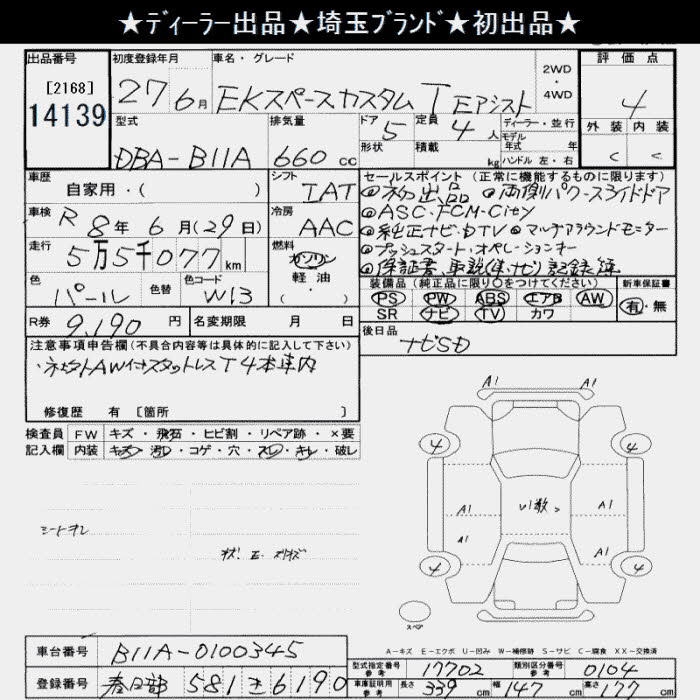 ★ディーラー出品★埼玉ブランド★初出品★
出品番号
[2168]
14139
初度登録年月
27 6月
車名・グレード
EKスペースカスタム T Eアシスト
2WD
4WD
評価点
4
外装 内装
C C
型式
DBA-B11A
排気量
660 cc
ドア
5
定員
4人
ディーラー・並行
モデル年式 年
形状
積載 kg
ハンドル 左・右
車歴
自家用・( )
シフト
IAT
車検
R 8年 6月(29日)
冷房
AAC
走行
5万5千077km
燃料
ガソリン
軽・油
( )
色
パール
色替
色コード
W13
R券
9,190 円
名変期限 月 日
セールスポイント (正常に機能するものに限ります)
◎初出品 ◎両側パワースライドドア
◎ASC・FCM-City
◎純正ナビ・DTV◎マルチアラウンドモニター
◎プッシュスタート・オペレーションキー
◎保証書、車説(車・ナビ)記録簿
装備品 (純正品に限り○をつけてください)
PS PW ABS エアB AW
SR ナビ TV カワ
新車保証書
有・無
後日品
ナビSD
注意事項申告欄(不具合内容等は具体的に記入して下さい)
AW付スタットレスT4本車内
修復歴 有 [箇所 ]
検査員 FW キズ・飛石・ヒビ割・リペア跡・×要
記入欄 内装 キズ・汚レ・コゲ・穴・スレ・キレ・破レ
シートヨレ
A1 A1
4 4
A1 A1
A1 A1
4 4
スペア
A-キズ E-エクボ U-凹み W-補修跡 S-サビ C-腐食 XX-交換済
車台番号
B11A-0100345
登録番号
春日部 581 さ 6190
型式指定番号 参考
17702
類別区分番号 参考
0104
車庫証明用 参考
長さ 339 cm 幅 147 cm 高さ 177 cm